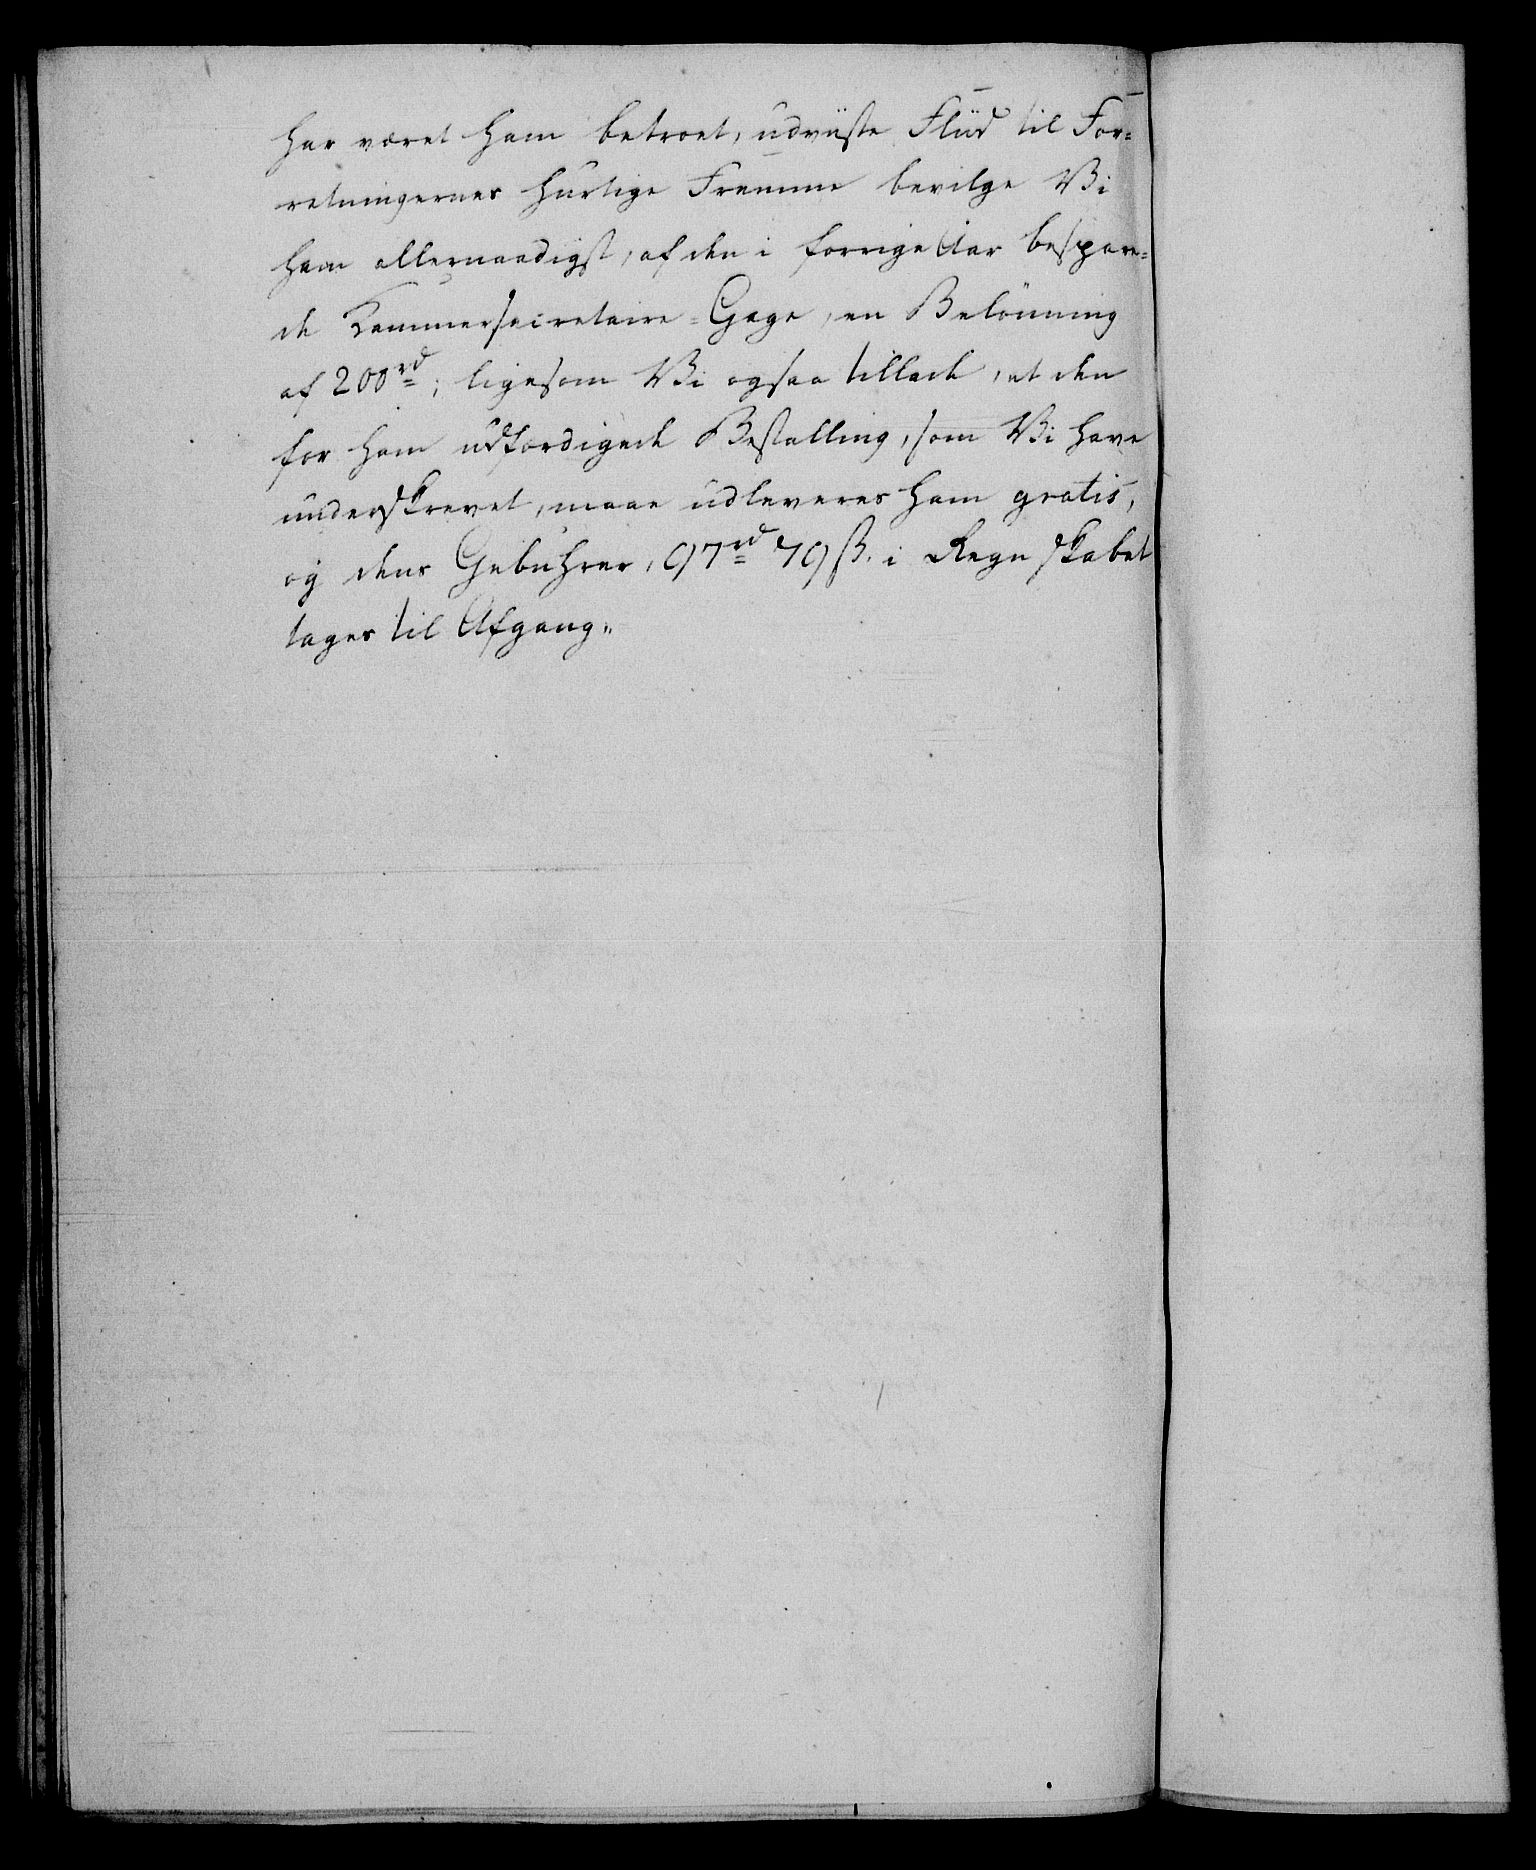 har været ham betroet, udviiste Fliid til For-
retningernes hurtige Fremme bevilge Vi
ham allernaadigst, af den i forrige Aar bespare-
de Kammersecretaire-Gage, en Belönning
af 200 rd; ligesom Vi ogsaa tillade, at den
for ham udfærdigede Bestalling, som Vi have
underskrevet, maae udleveres ham gratis,
og dens Gebuhrer, 97 rd 79 ß. i Regnskabet
tages til Afgang.„